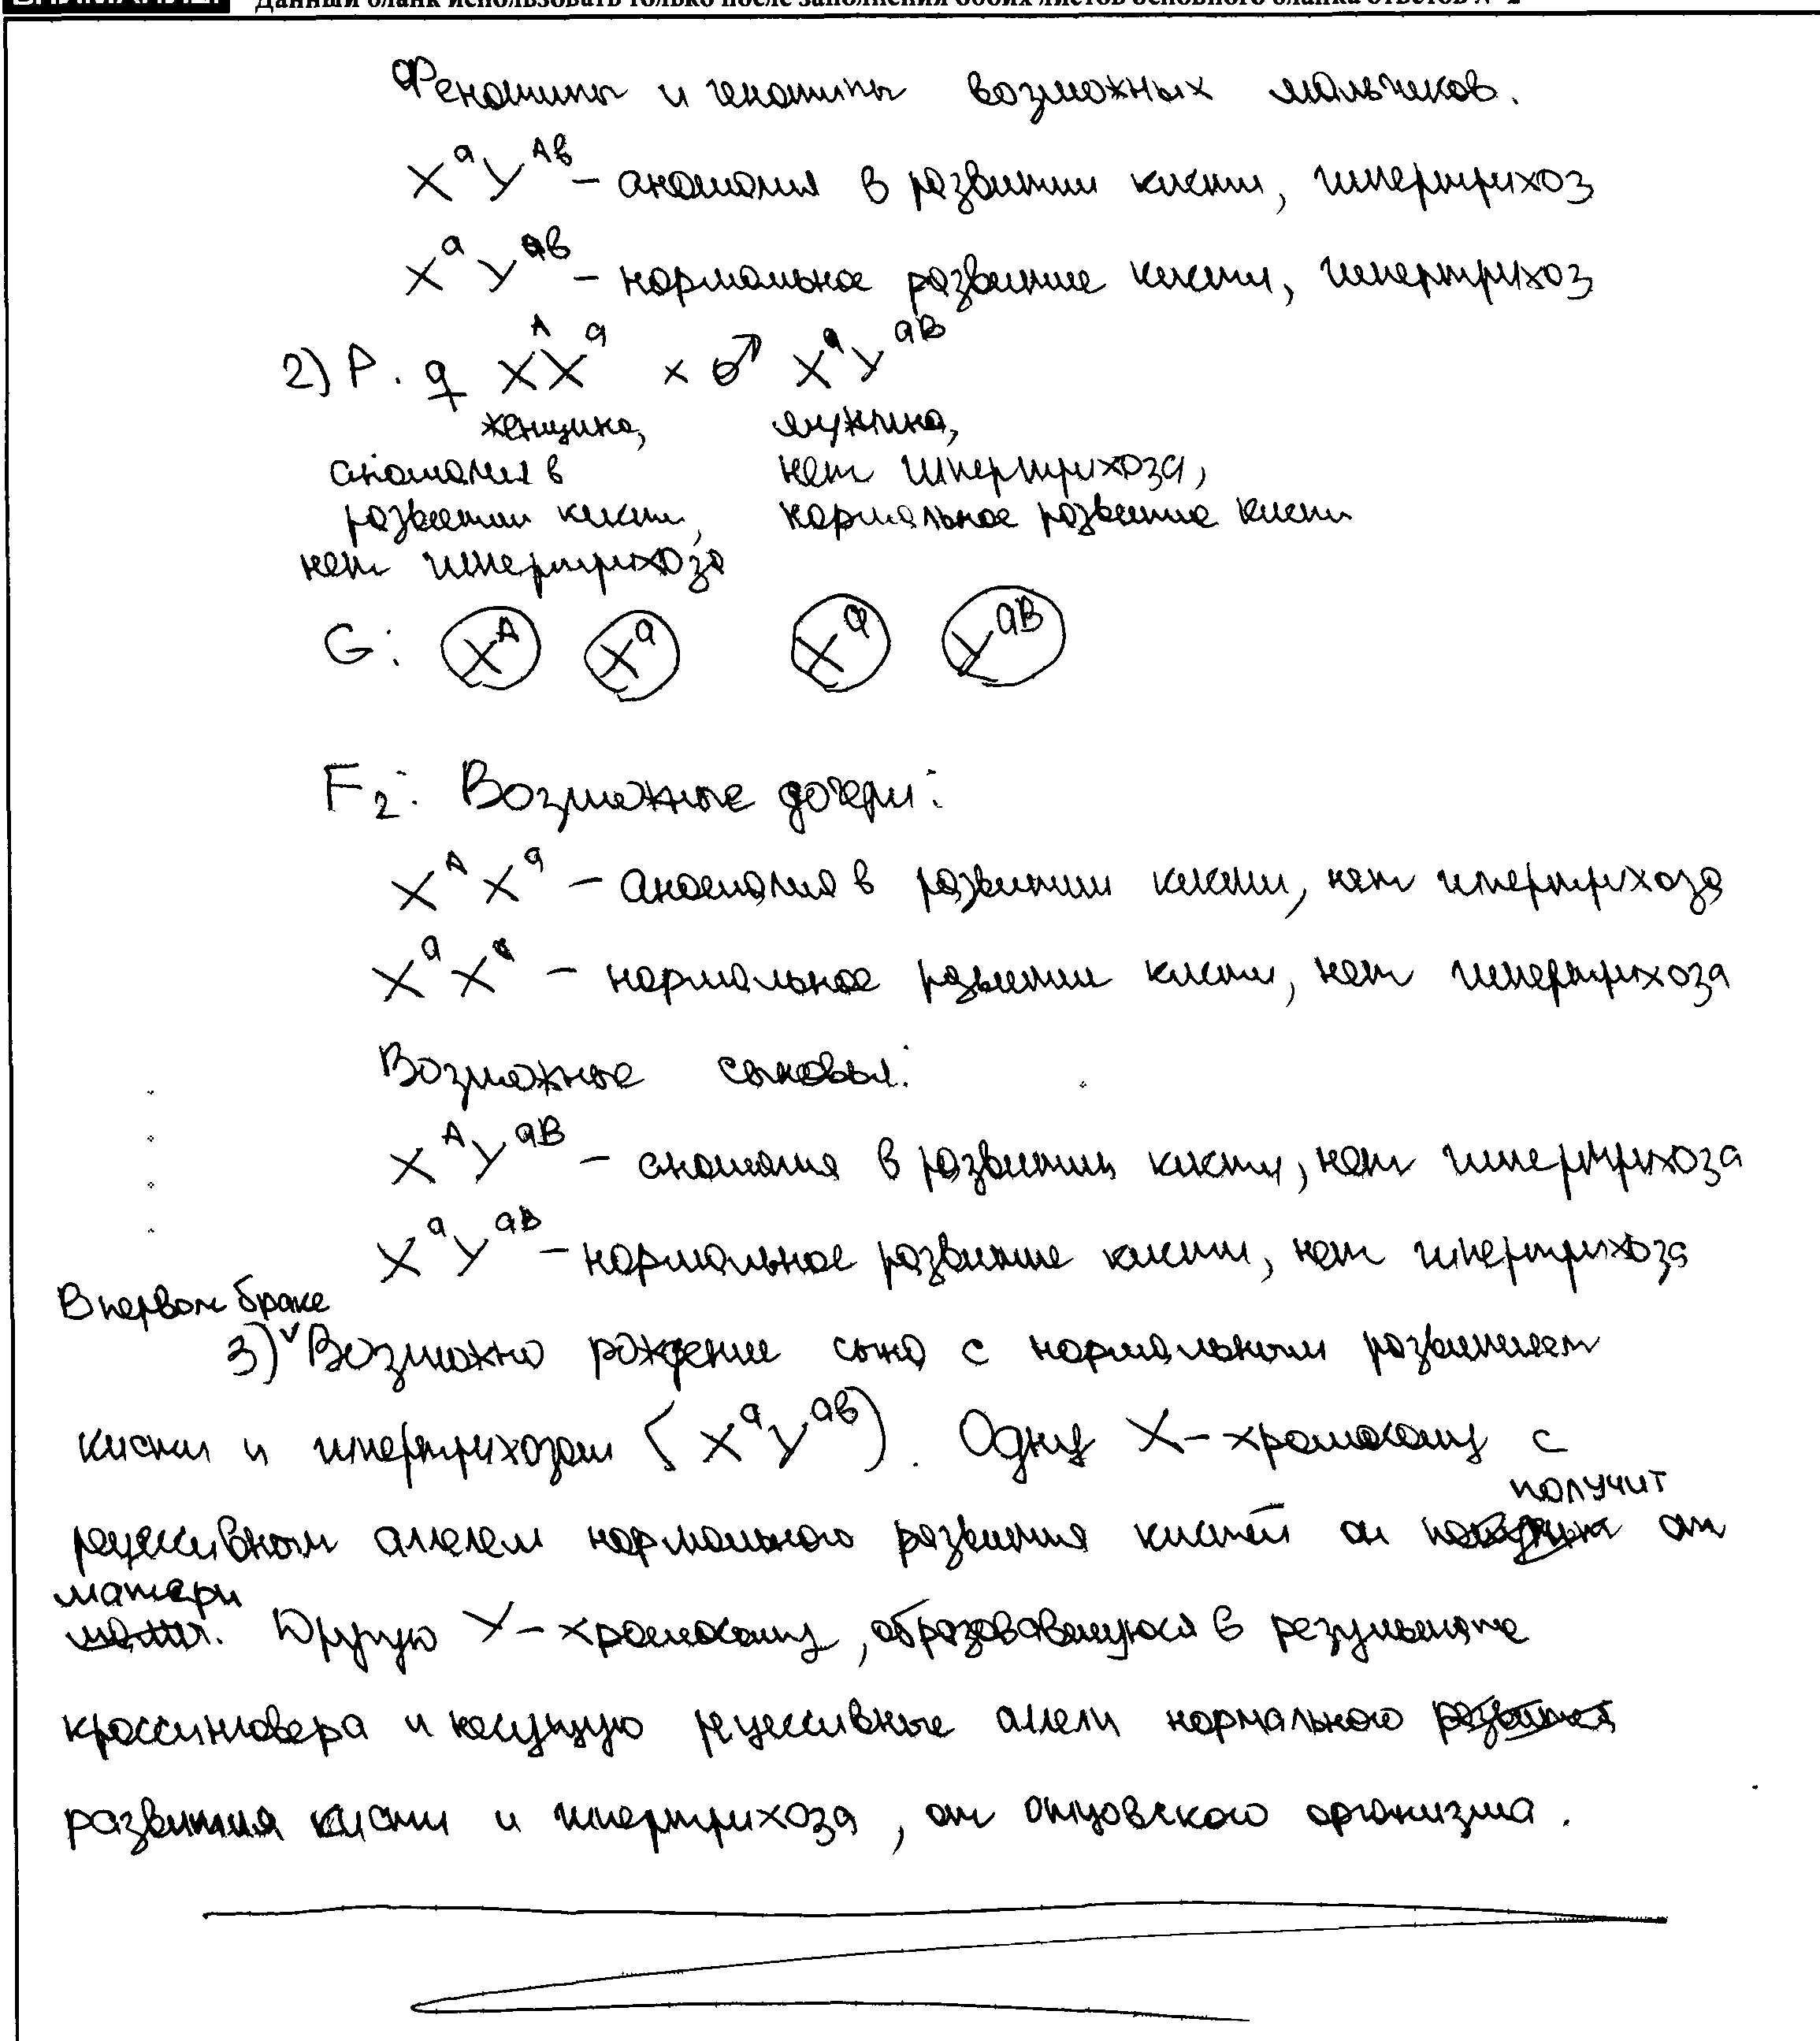 Данный бланк использовать только после заполнения обоих листов основного бланка ответов № 2
Фенотипы и генотипы возможных мальчиков.
XᵃYᴬᵇ – аномалия в развитии кисти, гипертрихоз
XᵃYᵃᵇ – нормальное развитие кисти, гипертрихоз
2) P. ♀ XᴬXᵃ × ♂ XᵃYᵃᴮ
женщина, мужчина,
аномалия в нет гипертрихоза,
развитии кисти, нормальное развитие кисти
нет гипертрихоза
G: Xᴬ Xᵃ Xᵃ Yᵃᴮ
F₂: Возможные дочери:
XᴬXᵃ – аномалия в развитии кисти, нет гипертрихоза
XᵃXᵃ – нормальное развитии кисти, нет гипертрихоза
Возможные сыновья:
XᴬYᵃᴮ – аномалия в развитии кисти, нет гипертрихоза
XᵃYᵃᴮ – нормальное развитие кисти, нет гипертрихоза
В первом браке
3) ᵛ Возможно рождение сына с нормальным развитием
кисти и гипертрихозом (XᵃYᵃᵇ). Одну X-хромосому с
получит
рецессивном аллелем нормального развития кистей он от
матери
. Другую Y-хромосому, образовавшуюся в результате
кроссинговера и несущую рецессивные аллели нормального
развития кисти и гипертрихоза, от отцовского организма.